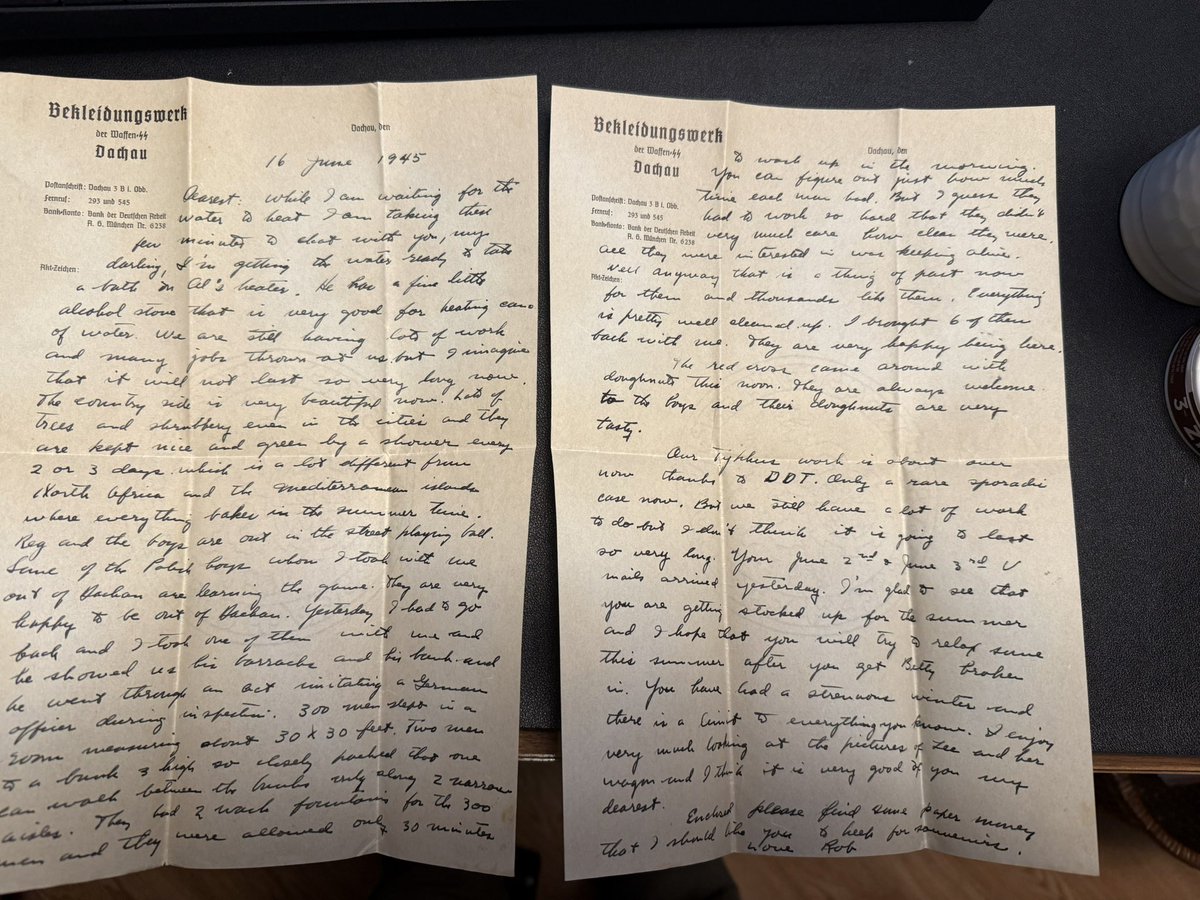 Bekleidungswerk
der Waffen-SS
Dachau
Dachau, den
16 June 1945
Postanschrift: Dachau 3 B i. Obb.
Fernruf: 293 und 545
Bank-Konto: Bank der Deutschen Arbeit
A. G. München Nr. 6238
Akt-Zeichen:
Dearest: While I am waiting for the
water to heat I am taking these
few minutes to chat with you, my
darling, I'm getting the water ready to take
a bath in Al's heater. He has a fine little
alcohol stove that is very good for heating cans
of water. We are still having lots of work
and many jobs thrown at us but I imagine
that it will not last so very long now.
The country side is very beautiful now. Lots of
trees and shrubbery even in the cities and they
are kept nice and green by a shower every
2 or 3 days which is a lot different from
North Africa and the Mediterranean islands
where everything bakes in the summer time.
Reg and the boys are out in the street playing ball.
Some of the Polish boys whom I took with me
out of Dachau are learning the game. They are very
happy to be out of Dachau. Yesterday I had to go
back and I took one of them with me and
he showed us his barracks and his bunk and
he went through an act imitating a German
officer during inspection. 300 men slept in a
room measuring about 30 x 30 feet. Two men
to a bunk 3 high so closely packed that one
can walk between the bunks only along 2 narrow
aisles. They had 2 wash fountains for the 300
men and they were allowed only 30 minutes
Bekleidungswerk
der Waffen-SS
Dachau
Dachau, den
Postanschrift: Dachau 3 B i. Obb.
Fernruf: 293 und 545
Bank-Konto: Bank der Deutschen Arbeit
A. G. München Nr. 6238
Akt-Zeichen:
to wash up in the morning.
You can figure out just how much
time each man had. But I guess they
had to work so hard that they didn't
very much care how clean they were,
all they were interested in was keeping alive.
Well anyway that is a thing of past now
for them and thousands like them. Everything
is pretty well cleaned up. I brought 6 of them
back with me. They are very happy being here.
The red cross came around with
doughnuts this noon. They are always welcome
to the boys and their doughnuts are very
tasty.
Our Typhus work is about over
now thanks to DDT. Only a rare sporadic
case now. But we still have a lot of work
to do but I don't think it is going to last
so very long. Your June 2nd & June 3rd V
mails arrived yesterday. I'm glad to see that
you are getting stocked up for the summer
and I hope that you will try to relax some
this summer after you get Betty broken
in. You have had a strenuous winter and
there is a limit to everything you know. I enjoy
very much looking at the pictures of Lee and her
wagon and I think it is very good of you my
dearest.
Enclosed please find some paper money
that I should like you to keep for souvenirs.
Love Rob